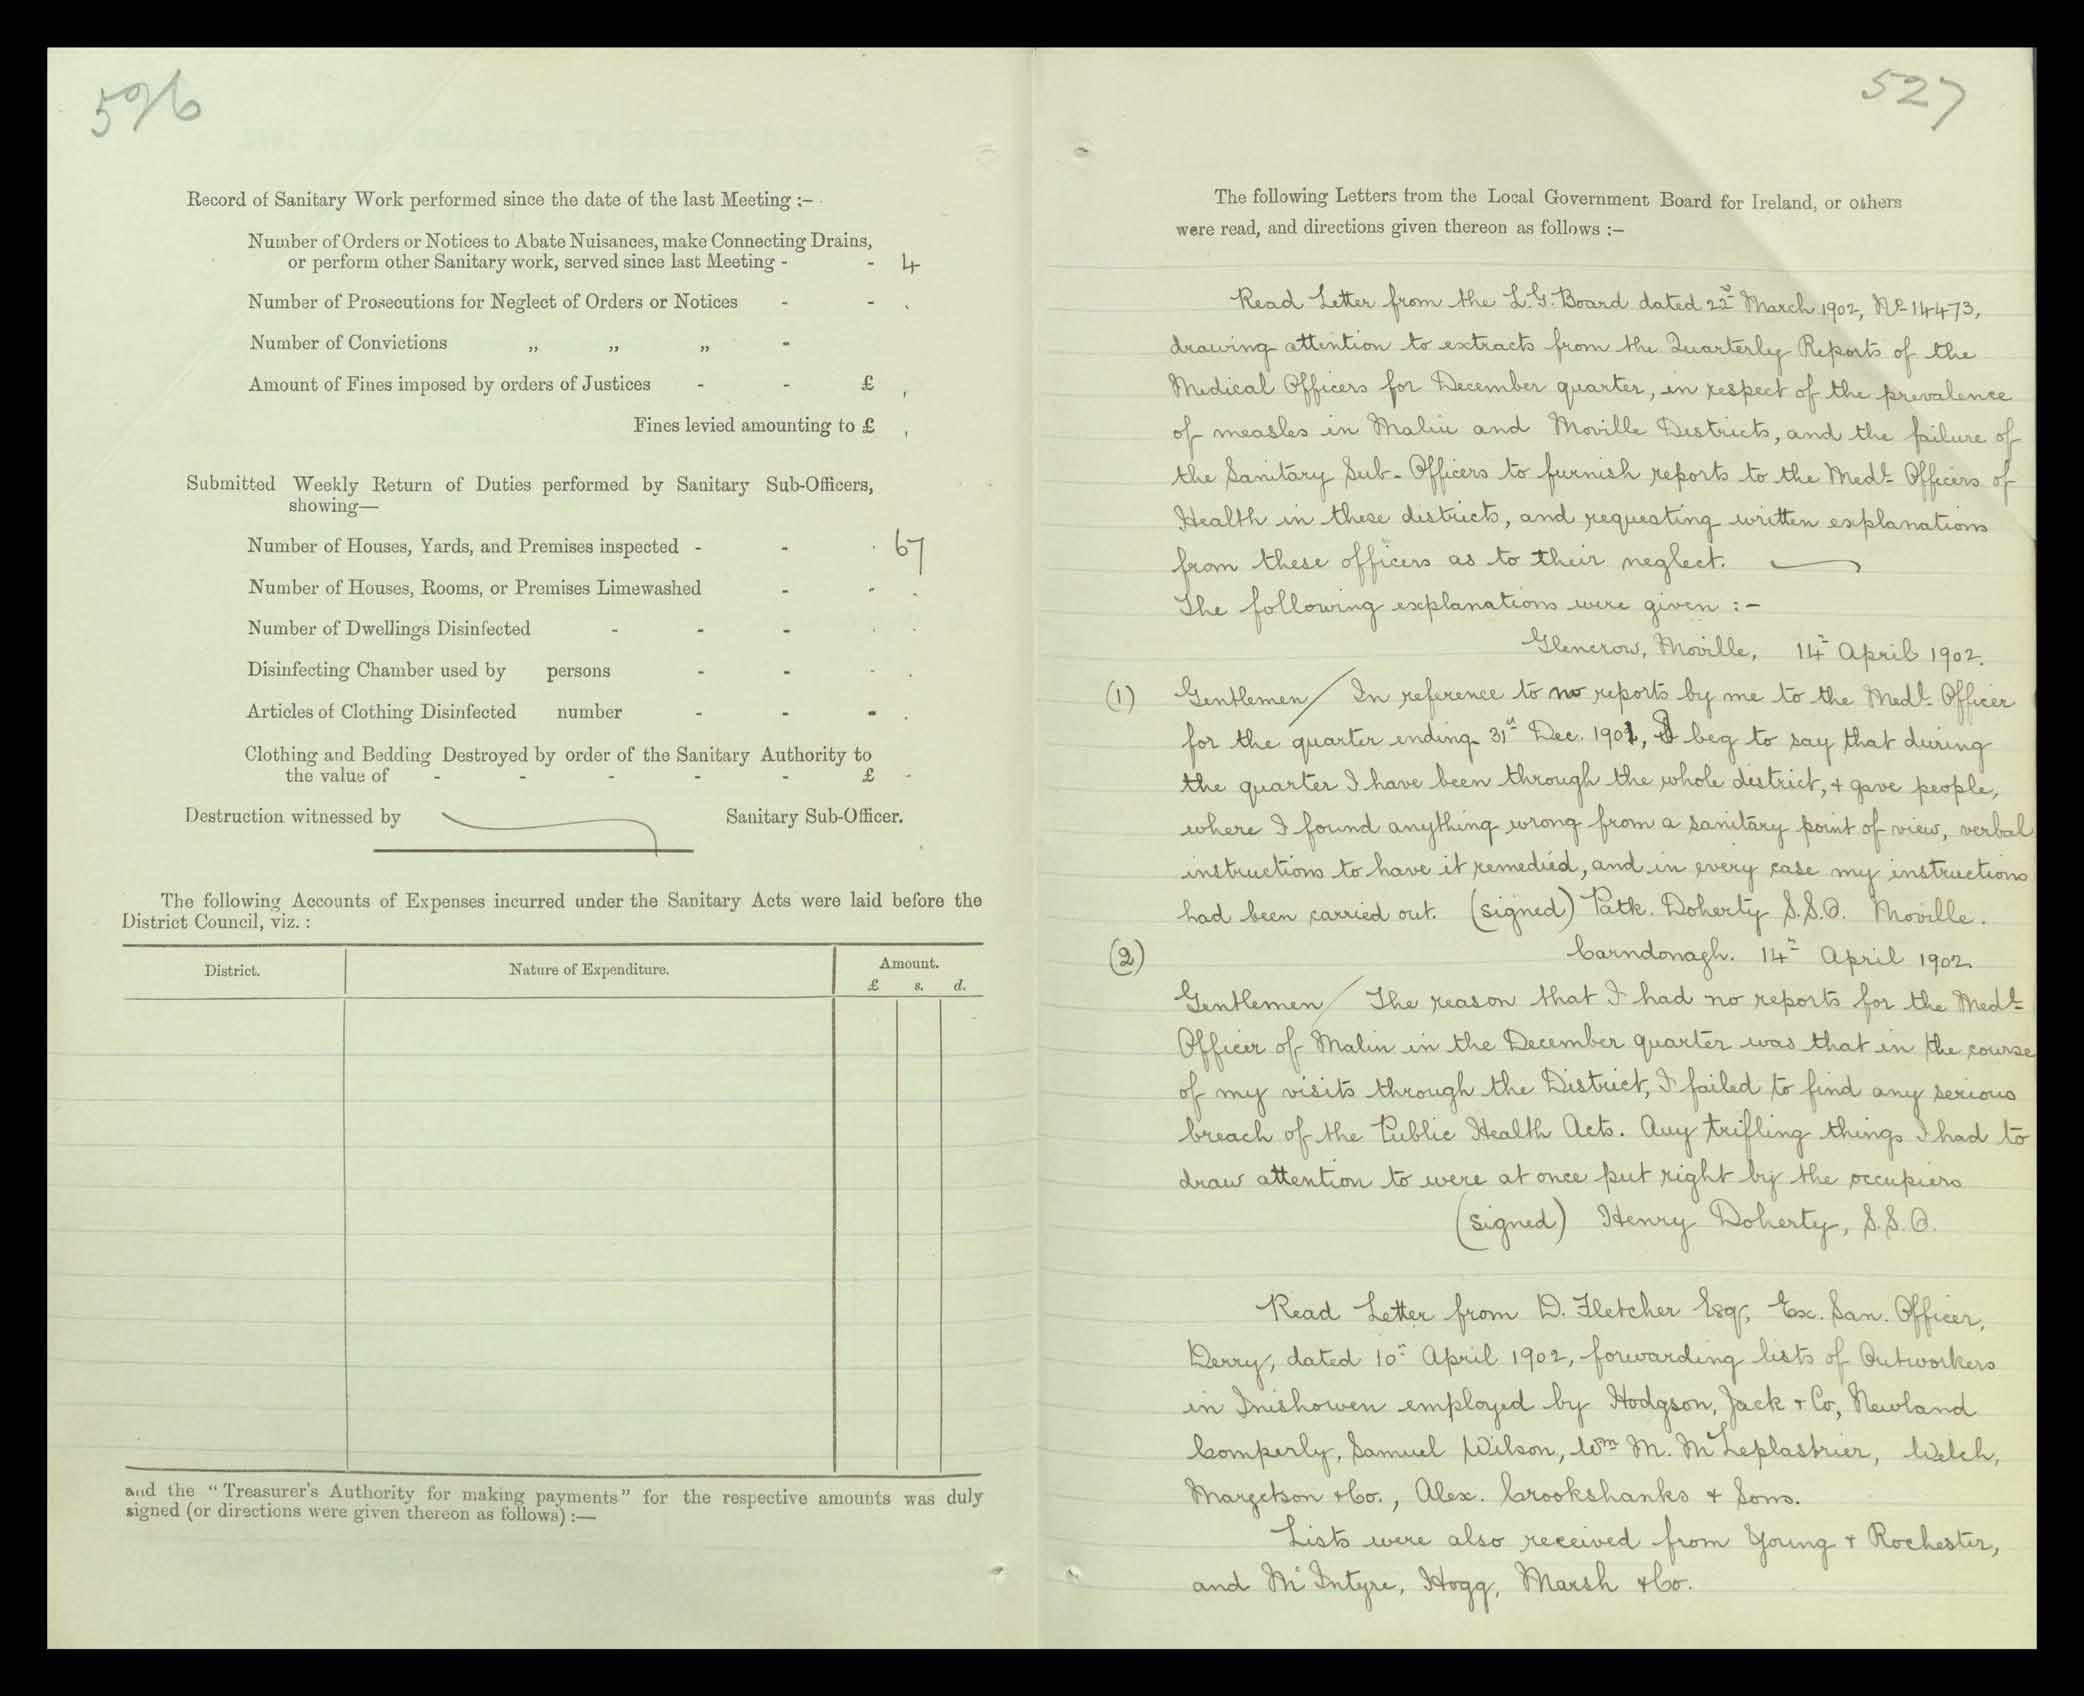 526
Record of Sanitary Work performed since the date of the last Meeting :-
Number of Orders or Notices to Abate Nuisances, make Connecting Drains,
or perform other Sanitary work, served since last Meeting - - 4
Number of Prosecutions for Neglect of Orders or Notices - - .
Number of Convictions „ „ „ -
Amount of Fines imposed by orders of Justices - - £ ,
Fines levied amounting to £ ,
Submitted Weekly Return of Duties performed by Sanitary Sub-Officers,
showing—
Number of Houses, Yards, and Premises inspected - - 67
Number of Houses, Rooms, or Premises Limewashed - - .
Number of Dwellings Disinfected - - - .
Disinfecting Chamber used by persons - - .
Articles of Clothing Disinfected number - - - .
Clothing and Bedding Destroyed by order of the Sanitary Authority to
the value of - - - - - £ -
Destruction witnessed by Sanitary Sub-Officer.
The following Accounts of Expenses incurred under the Sanitary Acts were laid before the
District Council, viz. :
District. Nature of Expenditure. Amount.
£ s. d.
and the "Treasurer's Authority for making payments" for the respective amounts was duly
signed (or directions were given thereon as follows) :—
527
The following Letters from the Local Government Board for Ireland, or others
were read, and directions given thereon as follows :—
Read Letter from the L.G. Board dated 22nd March 1902, No 14473,
drawing attention to extracts from the Quarterly Reports of the
Medical Officers for December quarter, in respect of the prevalence
of measles in Malin and Moville Districts, and the failure of
the Sanitary Sub-Officers to furnish reports to the Medl. Officers of
Health in these districts, and requesting written explanations
from these officers as to their neglect.
The following explanations were given :-
Glencrow, Moville, 14th April 1902.
(1) Gentlemen/ In reference to no reports by me to the Medl. Officer
for the quarter ending 31st Dec. 1901, I beg to say that during
the quarter I have been through the whole district, & gave people,
where I found anything wrong from a sanitary point of view, verbal
instructions to have it remedied, and in every case my instructions
had been carried out. (signed) Patk. Doherty S.S.O. Moville.
(2) Carndonagh. 14th April 1902.
Gentlemen/ The reason that I had no reports for the Medl.
Officer of Malin in the December quarter was that in the course
of my visits through the District, I failed to find any serious
breach of the Public Health Acts. Any trifling things I had to
draw attention to were at once put right by the occupiers
(signed) Henry Doherty, S.S.O.
Read Letter from D. Fletcher Esqr, Ex. San. Officer,
Derry, dated 10th April 1902, forwarding lists of Outworkers
in Inishowen employed by Hodgson, Jack & Co, Newland
Comperly, Samuel Wilson, Wm M. McLeplastrier, Welch,
Margetson & Co., Alex. Crookshanks & Sons.
Lists were also received from Young & Rochester,
and McIntyre, Hogg, Marsh & Co.